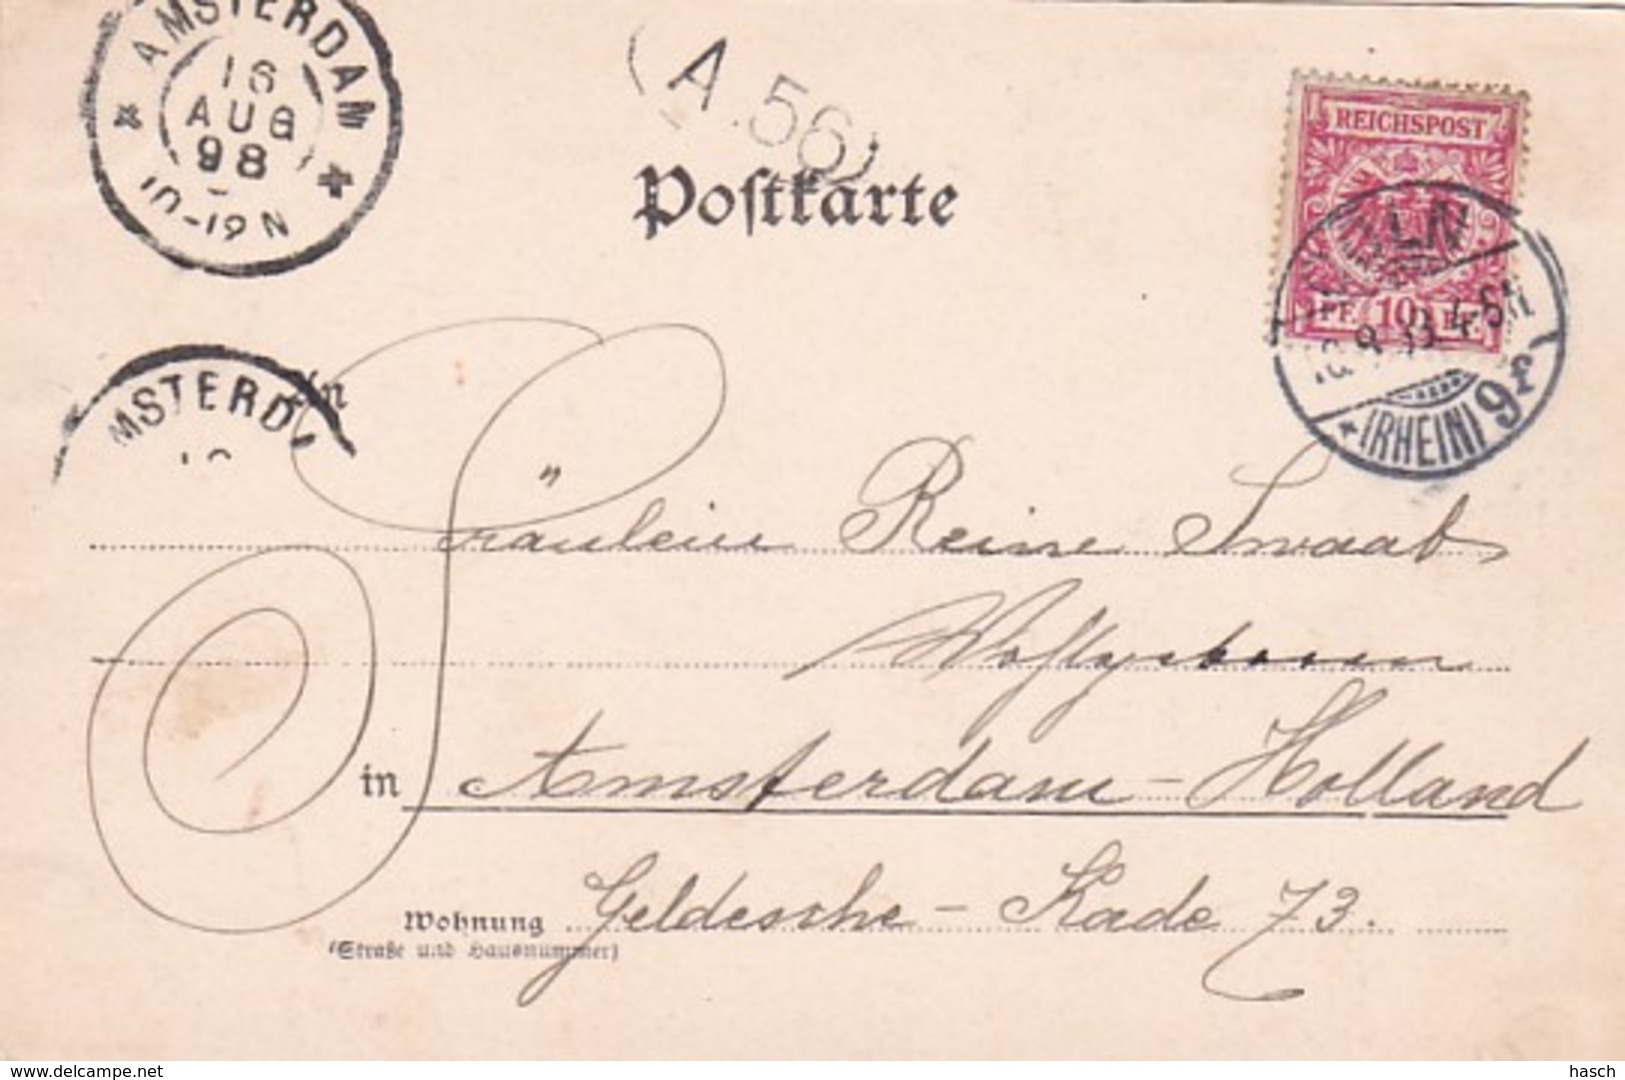 AMSTERDAM
16
AUG
98
10-12 N
(A.56)
Postkarte
REICHSPOST
PF. 10 PF.
LN
8. 4-5N
(RHEIN) 9f
MSTERD
An
Fräulein Reine Swaab
in Amsterdam - Holland
Geldesche - Kade 73.
Wohnung
(Straße und Hausnummer)
www.delcampe.net
hasch